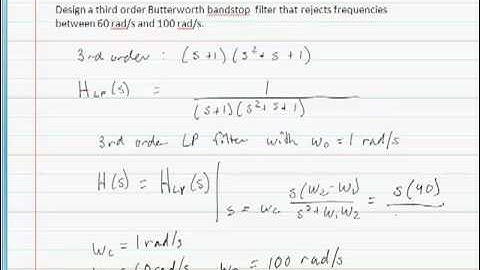 Design a third order Butterworth bandstop filter that rejects frequencies
between 60 rad/s and 100 rad/s.
3rd order : (s+1)(s²+s+1)
H_LP(s) = 1 / ((s+1)(s²+s+1))
3rd order LP filter with ω₀ = 1 rad/s
H(s) = H_LP(s) | s = ω_c s(ω₂-ω₁) / (s²+ω₁ω₂) = s(40)
ω_c = 1 rad/s
= 100 rad/s